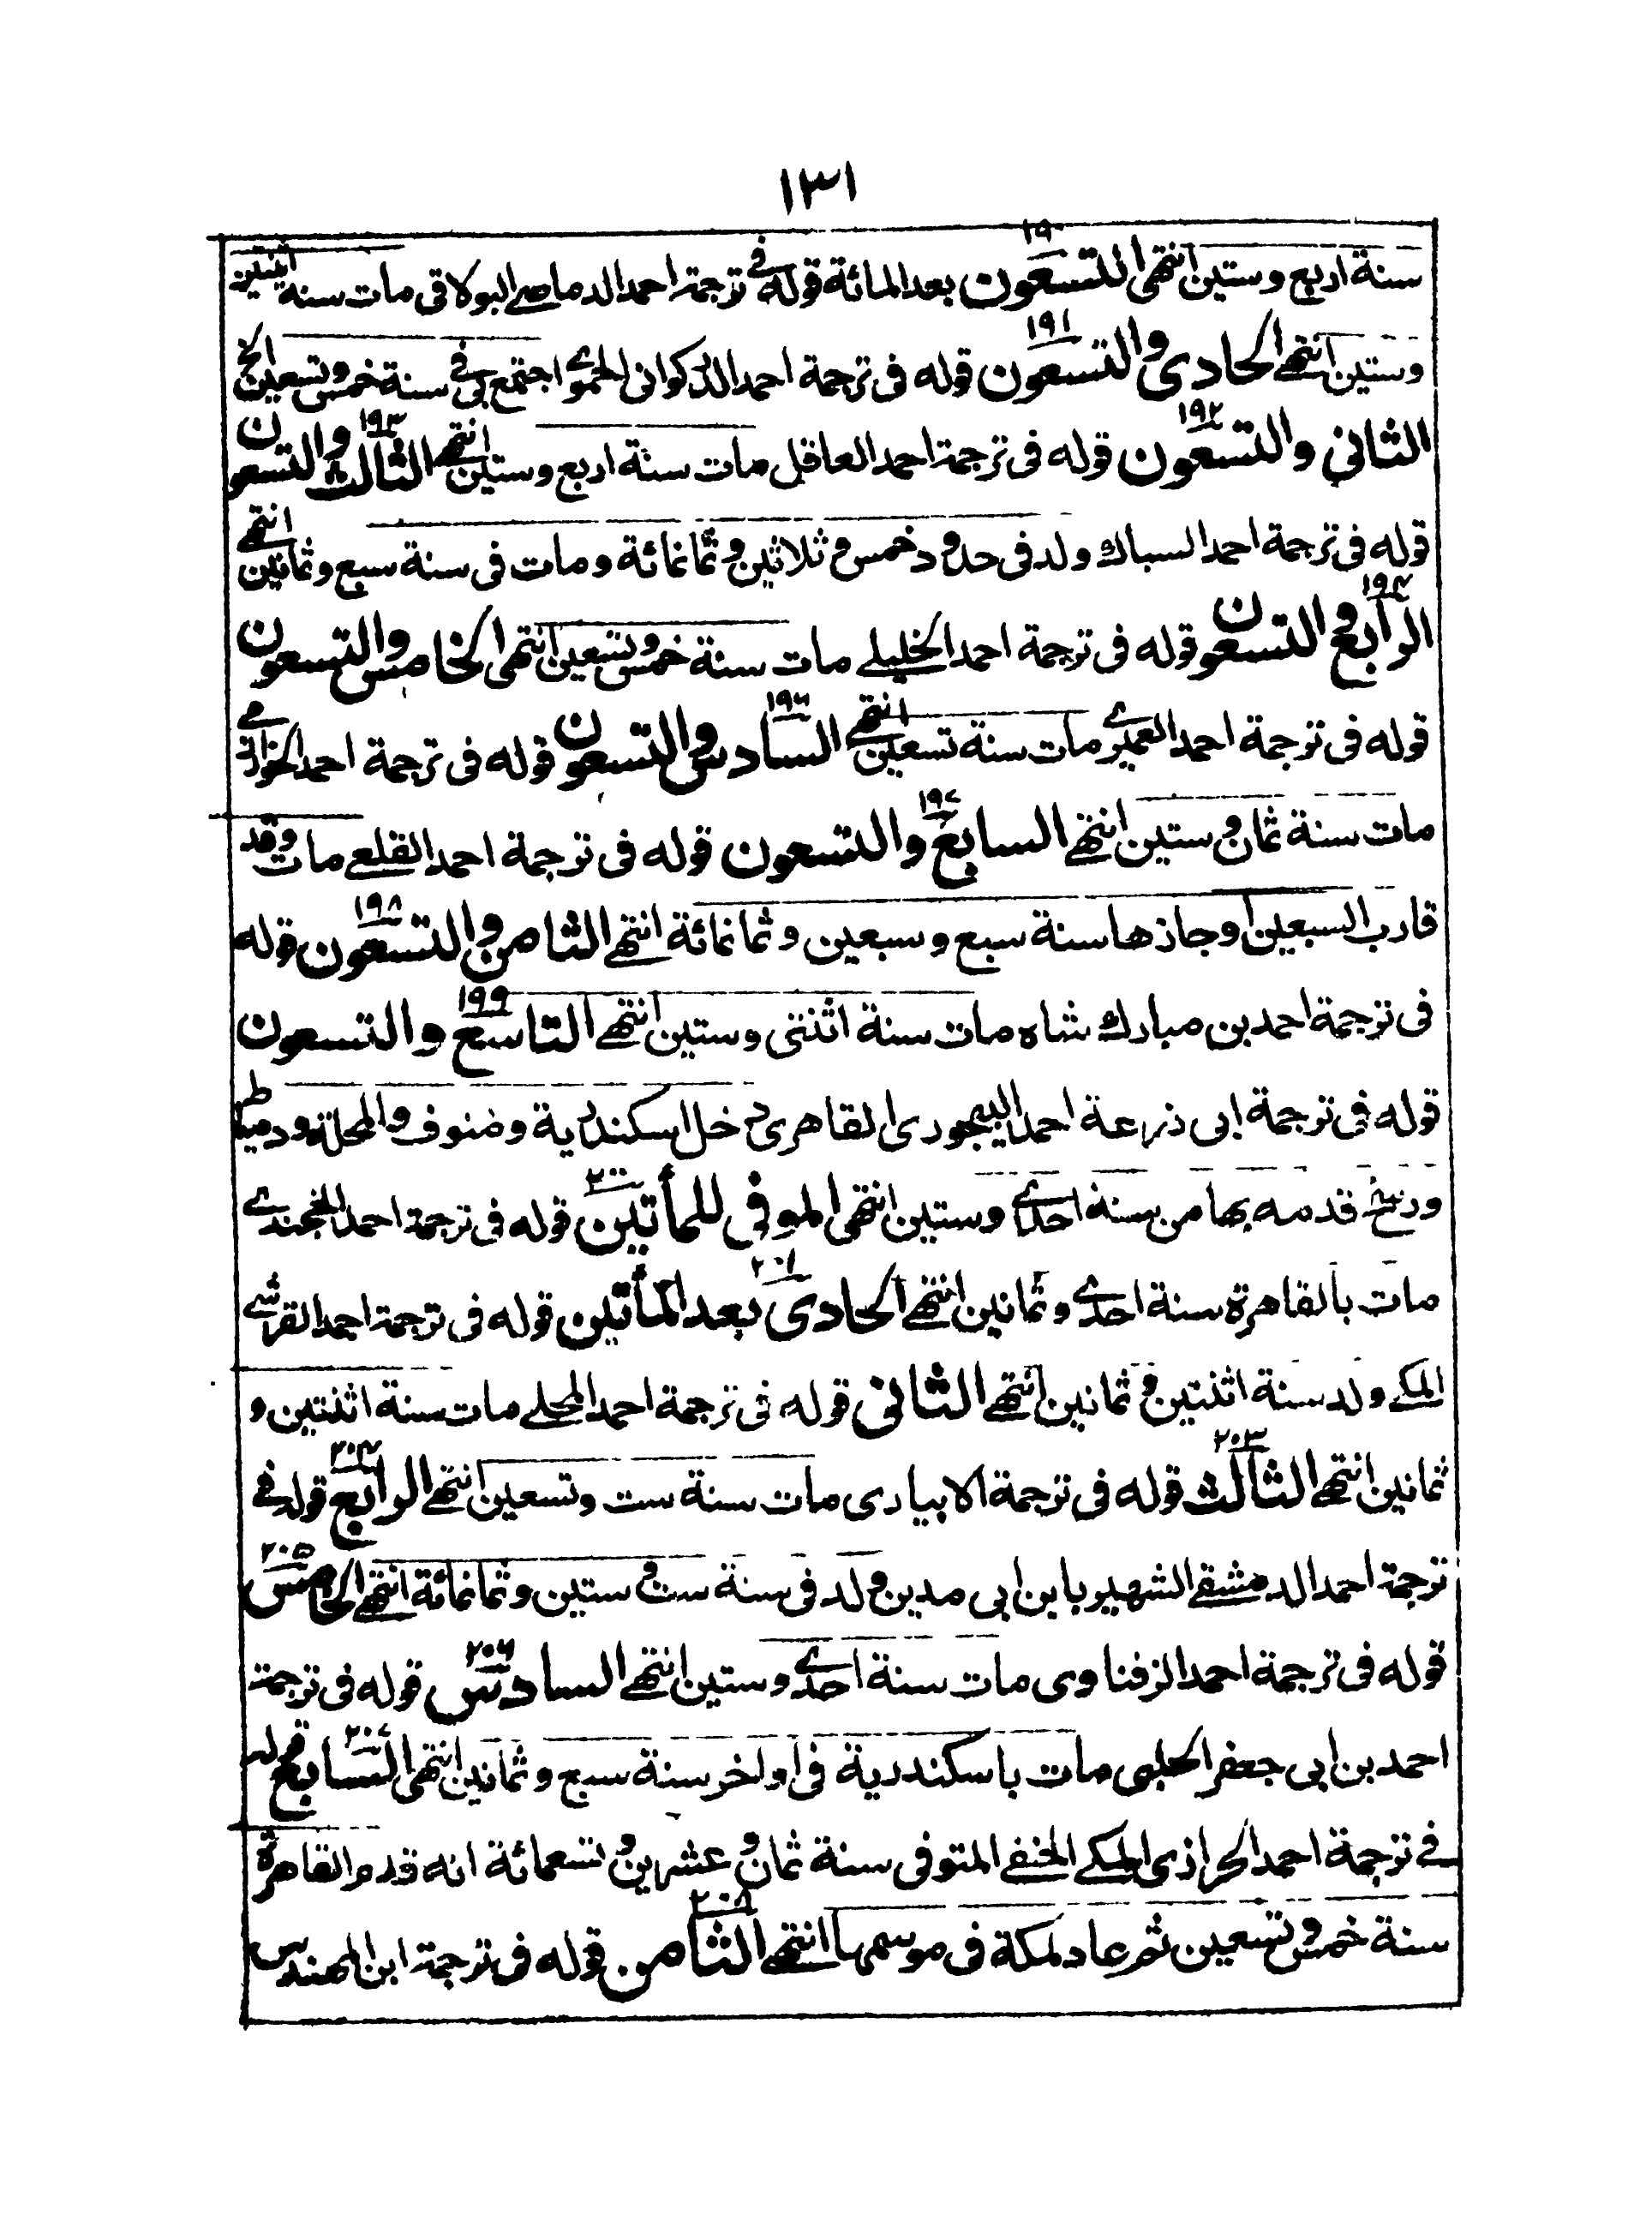 ١٣١
١٩٠
سنة اربع وستين انتهى التسعون بعد المائة قوله فى ترجمة احمد الدماصى البولاقى مات سنة اثنتين
١٩١
وستين انتهى الحادى والتسعون قوله فى ترجمة احمد الحموى اجتمع بى فى سنة خمس وتسعين الخ
١٩٢ ١٩٣
الثانى والتسعون قوله فى ترجمة احمد العاقل مات سنة اربع وستين انتهى الثالث والتسعون
قوله فى ترجمة احمد السباك ولد فى حدود خمس وثلاثين وثمانمائة ومات فى سنة سبع وثمانين انتهى
١٩٤
الرابع والتسعون قوله فى ترجمة احمد الخليلى مات سنة خمس وتسعين انتهى الخامس والتسعون
١٩٦
قوله فى ترجمة احمد العميرى مات سنة تسعين انتهى السادس والتسعون قوله فى ترجمة احمد
١٩٧
مات سنة ثمان وستين انتهى السابع والتسعون قوله فى ترجمة احمد القلعى مات وقد
١٩٨
قارب السبعين اوجازها سنة سبع وسبعين وثمانمائة انتهى الثامن والتسعون قوله
١٩٩
فى ترجمة احمد بن مبارك شاه مات سنة اثنتى وستين انتهى التاسع والتسعون
قوله فى ترجمة ابى ذرعة احمد البيجورى القاهرى دخل اسكندرية ومنوف والمحلة ودمياط
٢٠٠
ورسخ قدمه بها من سنة احدى وستين انتهى الموفى للمأتين قوله فى ترجمة احمد الخجندى
٢٠١
مات بالقاهرة سنة احدى وثمانين انتهى الحادى بعد المأتين قوله فى ترجمة احمد القرشى
المكى ولد سنة اثنتين وثمانين انتهى الثانى قوله فى ترجمة احمد المحلى مات سنة اثنتين و
٢٠٣ ٢٠٤
ثمانين انتهى الثالث قوله فى ترجمة الابيارى مات سنة ست وتسعين انتهى الرابع قوله فى
٢٠٥
ترجمة احمد الدمشقى الشهير بابن ابى مدين ولد فى سنة ست وستين وثمانمائة انتهى الخامس
٢٠٦
قوله فى ترجمة احمد الزفتاوى مات سنة احدى وستين انتهى السادس قوله فى ترجمة
٢٠٧
احمد بن ابى جعفر الحلبى مات باسكندرية فى اواخر سنة سبع وثمانين انتهى السابع قوله
فى ترجمة احمد الحرازى المكى الحنفى المتوفى سنة ثمان وعشرين وتسعمائة انه قدم القاهرة
٢٠٨
سنة خمس وتسعين ثم عاد لمكة فى موسمها انتهى الثامن قوله فى ترجمة ابن المهندس